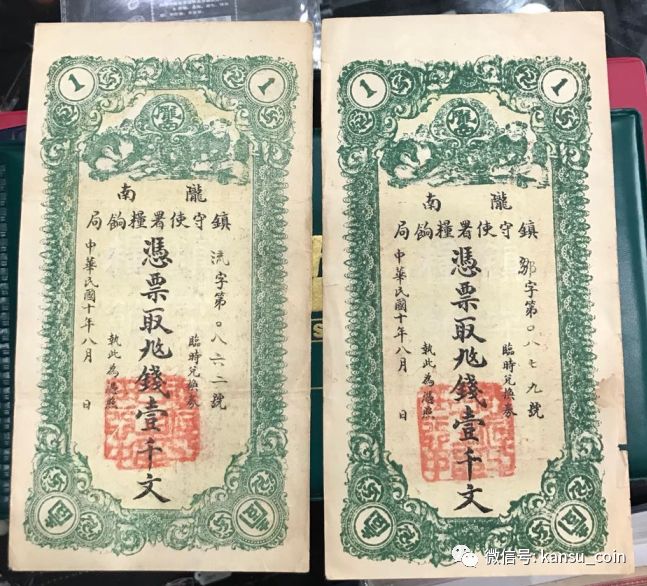 1 1
隴南
鎮守使署糧餉局
流字第〇八六二號
臨時兌換券
憑票取兆錢壹千文
執此為憑照
中華民國十年八月 日
1 1
隴南
鎮守使署糧餉局
字第〇八七九號
臨時兌換券
憑票取兆錢壹千文
執此為憑照
中華民國十年八月 日
微信号: kansu_coin